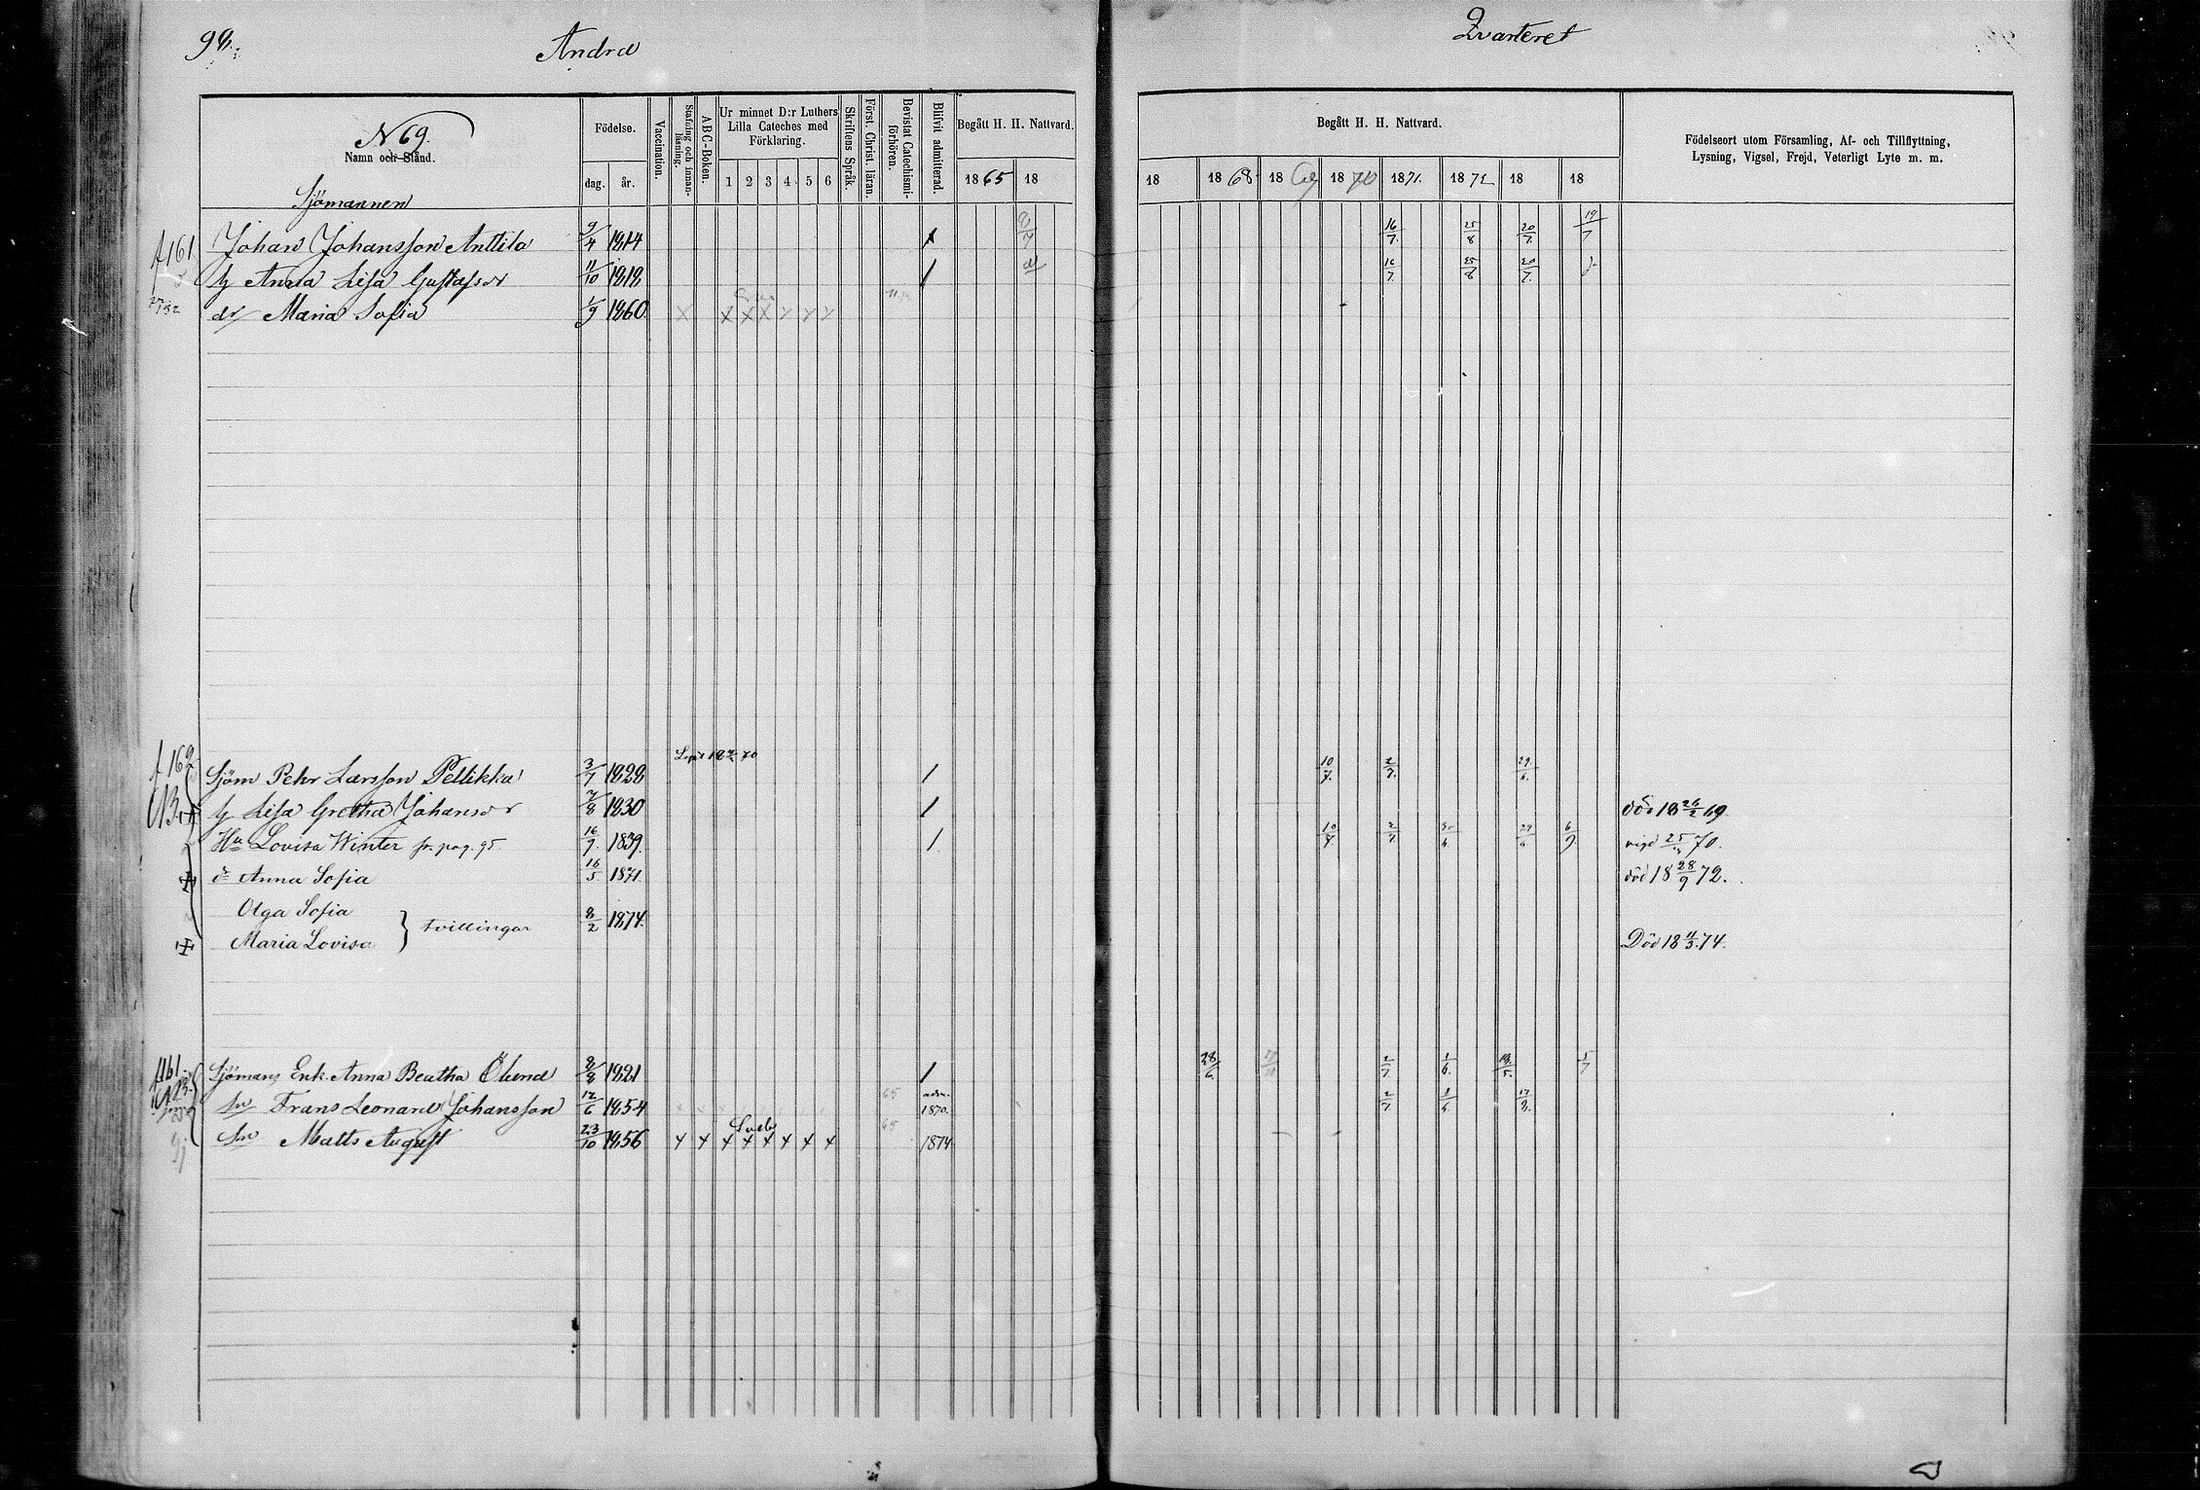 98.
Andra
Qvarteret
N 69.
Namn och Stånd.
Födelse.
dag.
år.
Vaccination.
Stafning och innan-läsning.
ABC-Boken.
Ur minnet D:r Luthers
Lilla Cateches med
Förklaring.
1 2 3 4 5 6
Skriftens Språk.
Först. Christ. läran.
Bevistat Catechismi-förhören.
Blifvit admitterad.
Begått H. H. Nattvard.
1865 18
Begått H. H. Nattvard.
18 1868 1869 1870 1871. 1872 18 18
Födelseort utom Församling, Af- och Tillflyttning,
Lysning, Vigsel, Frejd, Veterligt Lyte m. m.
Sjömannen
f 161 Johan Johansson Anttila 9/4 1814 16/7. 25/8 20/7. 19/7
h Anna Lisa Gustafsdr 11/10 1818 16/7 25/8 20/7.
dr Maria Sofia 1/9 1860 × × × × × × ×
f 162
Sjöm Pehr Larsson Pellikka 3/7 1828 / 10/7. 2/7. 29/6.
h Lisa Gretha Johansdr 7/8 1830 / död 18 26/2 69.
Hu Lovisa Winter fr. pag. 95. 16/7. 1839. / 10/7 2/7 6/9 vigd 25/ 70.
dr Anna Sofia 16/5. 1871. död 18 28/9 72.
Olga Sofia
} tvillingar 8/2 1874.
Maria Lovisa Död 18 11/3. 74.
f161
Sjömans Enk. Anna Beatha Ölund 8/8 1821 / 28/6. 2/7 1/6. 18/5. 5/7
Sn Frans Leonard Johansson 12/6 1854 65 adm. 1870. 2/7. 1/6
Sn Matts August 23/10 1856 × × × × × × × × 65 1874